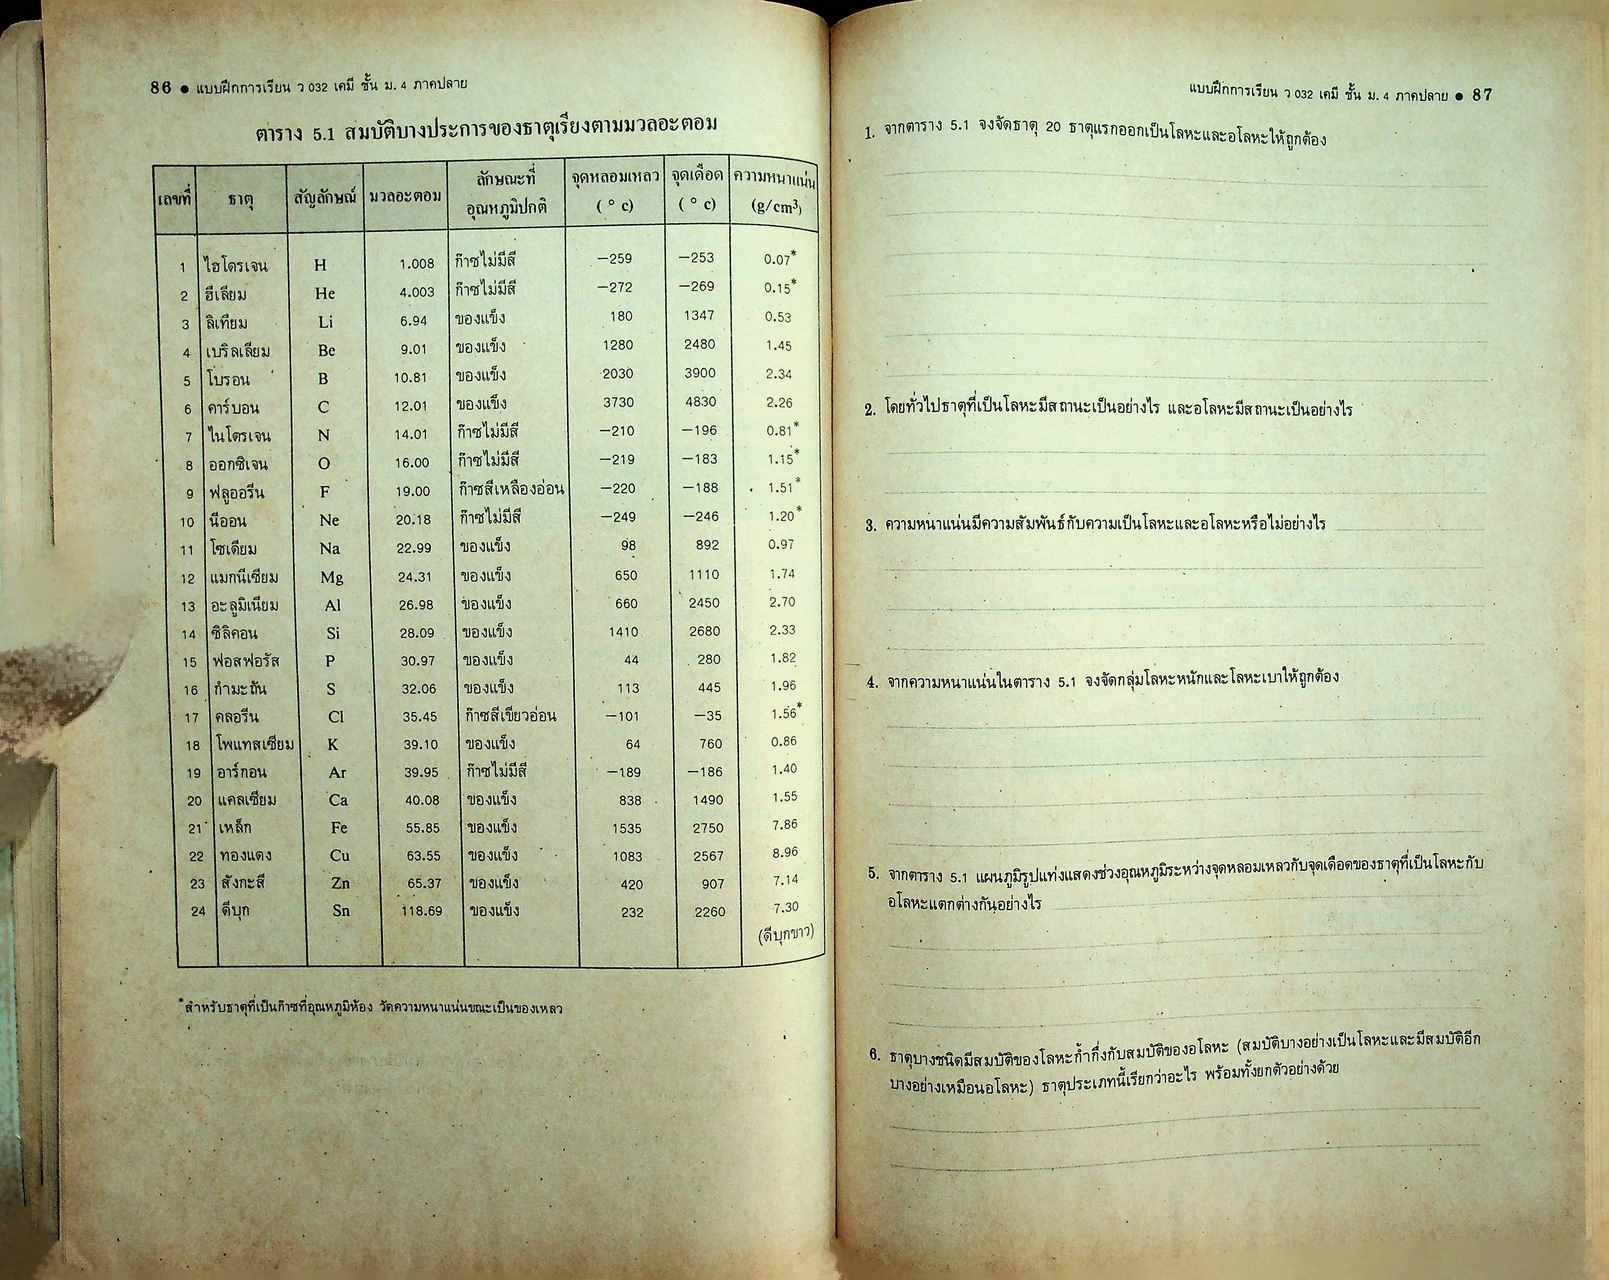 86 ● แบบฝึกการเรียน ว 032 เคมี ชั้น ม. 4 ภาคปลาย
ตาราง 5.1 สมบัติบางประการของธาตุเรียงตามมวลอะตอม
เลขที่ ธาตุ สัญลักษณ์ มวลอะตอม ลักษณะที่อุณหภูมิปกติ จุดหลอมเหลว (°c) จุดเดือด (°c) ความหนาแน่น (g/cm³)
1 ไฮโดรเจน H 1.008 ก๊าซไม่มีสี −259 −253 0.07*
2 ฮีเลียม He 4.003 ก๊าซไม่มีสี −272 −269 0.15*
3 ลิเทียม Li 6.94 ของแข็ง 180 1347 0.53
4 เบริลเลียม Be 9.01 ของแข็ง 1280 2480 1.45
5 โบรอน B 10.81 ของแข็ง 2030 3900 2.34
6 คาร์บอน C 12.01 ของแข็ง 3730 4830 2.26
7 ไนโตรเจน N 14.01 ก๊าซไม่มีสี −210 −196 0.81*
8 ออกซิเจน O 16.00 ก๊าซไม่มีสี −219 −183 1.15*
9 ฟลูออรีน F 19.00 ก๊าซสีเหลืองอ่อน −220 −188 1.51*
10 นีออน Ne 20.18 ก๊าซไม่มีสี −249 −246 1.20*
11 โซเดียม Na 22.99 ของแข็ง 98 892 0.97
12 แมกนีเซียม Mg 24.31 ของแข็ง 650 1110 1.74
13 อะลูมิเนียม Al 26.98 ของแข็ง 660 2450 2.70
14 ซิลิคอน Si 28.09 ของแข็ง 1410 2680 2.33
15 ฟอสฟอรัส P 30.97 ของแข็ง 44 280 1.82
16 กำมะถัน S 32.06 ของแข็ง 113 445 1.96
17 คลอรีน Cl 35.45 ก๊าซสีเขียวอ่อน −101 −35 1.56*
18 โพแทสเซียม K 39.10 ของแข็ง 64 760 0.86
19 อาร์กอน Ar 39.95 ก๊าซไม่มีสี −189 −186 1.40
20 แคลเซียม Ca 40.08 ของแข็ง 838 1490 1.55
21 เหล็ก Fe 55.85 ของแข็ง 1535 2750 7.86
22 ทองแดง Cu 63.55 ของแข็ง 1083 2567 8.96
23 สังกะสี Zn 65.37 ของแข็ง 420 907 7.14
24 ดีบุก Sn 118.69 ของแข็ง 232 2260 7.30
(ดีบุกขาว)
*สำหรับธาตุที่เป็นก๊าซที่อุณหภูมิห้อง วัดความหนาแน่นขณะเป็นของเหลว
แบบฝึกการเรียน ว 032 เคมี ชั้น ม. 4 ภาคปลาย ● 87
1. จากตาราง 5.1 จงจัดธาตุ 20 ธาตุแรกออกเป็นโลหะและอโลหะให้ถูกต้อง
2. โดยทั่วไปธาตุที่เป็นโลหะมีสถานะเป็นอย่างไร และอโลหะมีสถานะเป็นอย่างไร
3. ความหนาแน่นมีความสัมพันธ์กับความเป็นโลหะและอโลหะหรือไม่อย่างไร
4. จากความหนาแน่นในตาราง 5.1 จงจัดกลุ่มโลหะหนักและโลหะเบาให้ถูกต้อง
5. จากตาราง 5.1 แผนภูมิรูปแท่งแสดงช่วงอุณหภูมิระหว่างจุดหลอมเหลวกับจุดเดือดของธาตุที่เป็นโลหะกับ
อโลหะแตกต่างกันอย่างไร
6. ธาตุบางชนิดมีสมบัติของโลหะก้ำกึ่งกับสมบัติของอโลหะ (สมบัติบางอย่างเป็นโลหะและมีสมบัติอีก
บางอย่างเหมือนอโลหะ) ธาตุประเภทนี้เรียกว่าอะไร พร้อมทั้งยกตัวอย่างด้วย